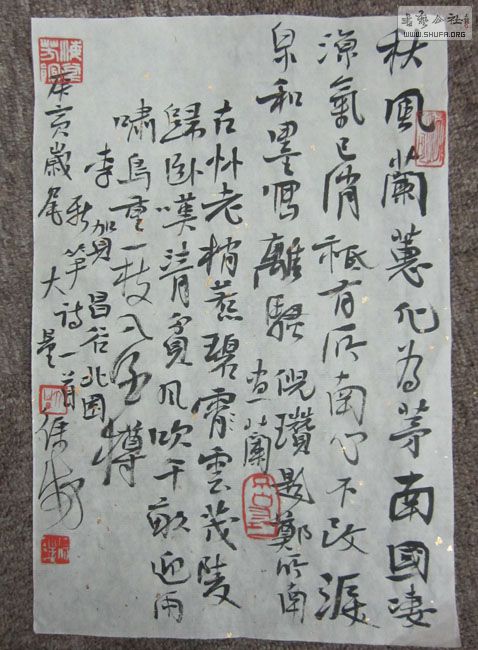 書藝公社
WWW.SHUFA.ORG
秋風蘭蕙化為茅南國凄
涼氣已消祗有所南心不改淚
泉和墨寫離騷 倪瓚題鄭所南
畫蘭
古竹老梢惹碧霄雲茂陵
歸卧嘆清貧風吹千畝迎雨
嘯鳥重一枝入酒樽
李賀昌谷北園
新筍詩一首
庚寅歲尾大量